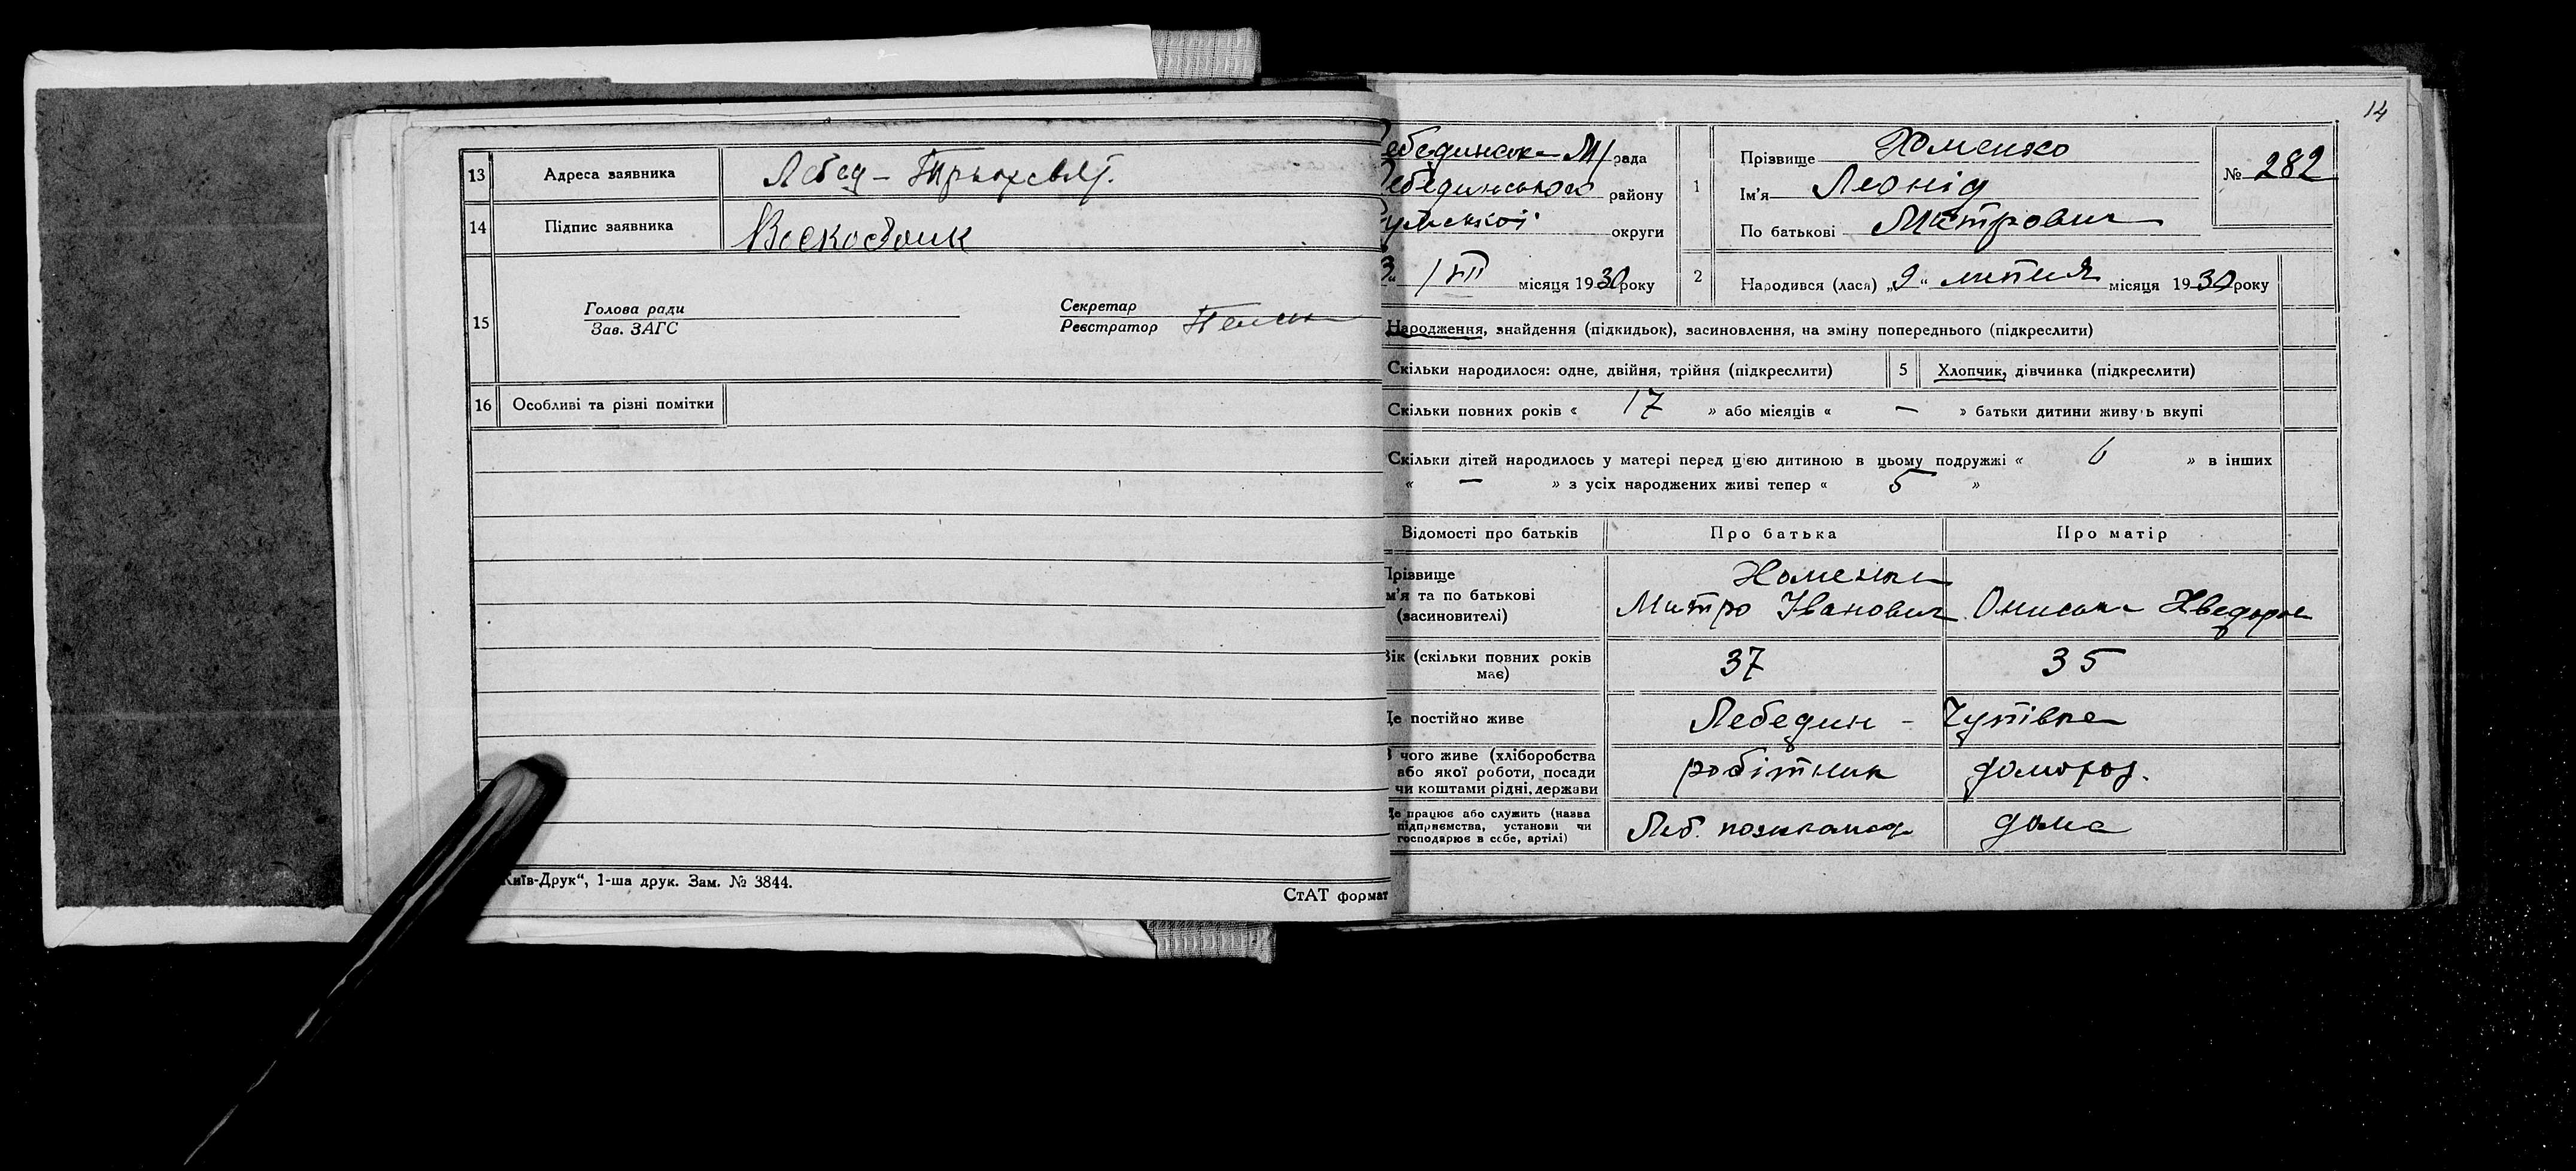 13 Адреса заявника Лебед – Трьохсвят.
14 Підпис заявника Воскобойник
15 Голова ради
Зав. ЗАГС
Секретар
Реєстратор
16 Особливі та різні помітки
Київ-Друк“, 1-ша друк. Зам. № 3844.
СтАТ формат
14
ебединська М/рада
ебединського району
умської округи
3“ VIII місяця 1930 року
1 Прізвище Хоменко
Ім'я Леонід
По батькові Митрович
№ 282
2 Народився (лася) „9“ липня місяця 1930 року
Народження, знайдення (підкидьок), засиновлення, на зміну попереднього (підкреслити)
Скільки народилося: одне, двійня, трійня (підкреслити) 5 Хлопчик, дівчинка (підкреслити)
Скільки повних років « 17 » або місяців « — » батьки дитини живуть вкупі
Скільки дітей народилось у матері перед цією дитиною в цьому подружжі « 6 » в інших
« — » з усіх народжених живі тепер « 5 »
Відомості про батьків Про батька Про матір
Прізвище
м'я та по батькові
(засиновителі)
Хоменки
Митро Іванович Ониська Хведоров
Вік (скільки повних років
має) 37 35
Де постійно живе Лебедин – Чупівка
З чого живе (хліборобства
або якої роботи, посади
чи коштами рідні, держави робітник домогос.
Де працює або служить (назва
підприємства, установи чи
господарює в себе, артілі) Леб. пожкоманд дома